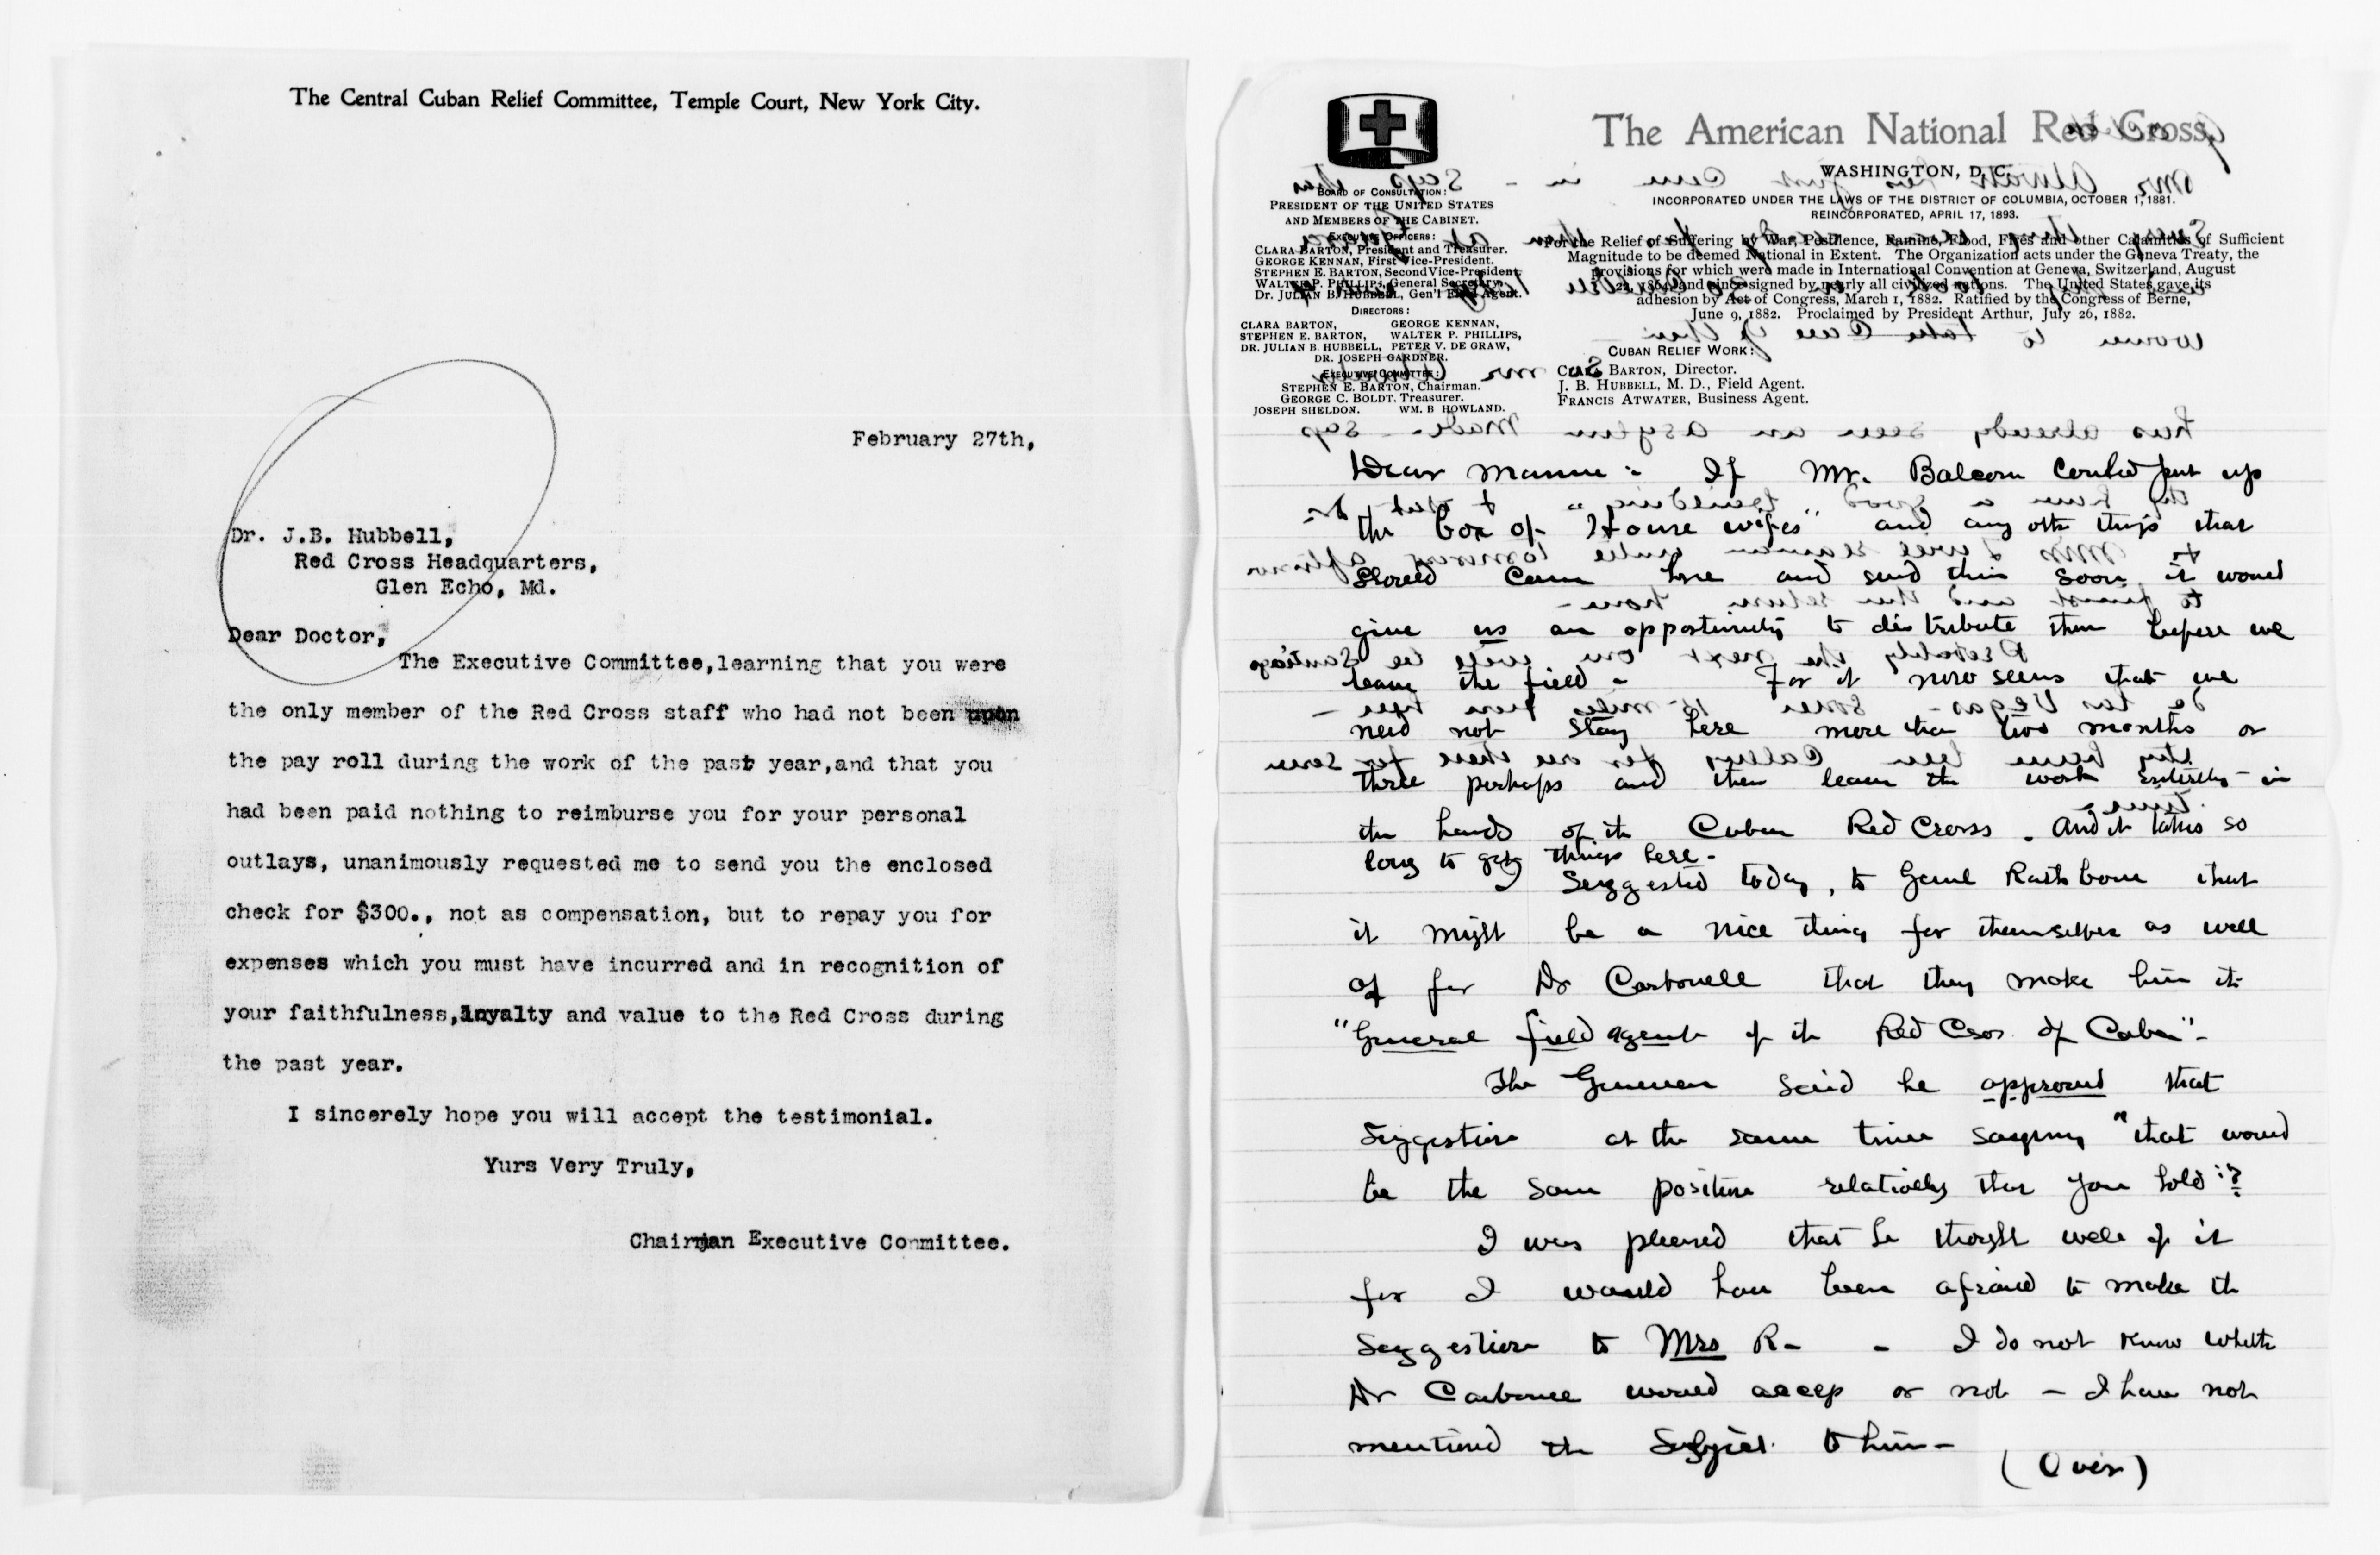 The Central Cuban Relief Committee, Temple Court, New York City.
February 27th,
Dr. J.B. Hubbell,
Red Cross Headquarters,
Glen Echo, Md.
Dear Doctor,
The Executive Committee,learning that you were
the only member of the Red Cross staff who had not been upon
the pay roll during the work of the past year,and that you
had been paid nothing to reimburse you for your personal
outlays, unanimously requested me to send you the enclosed
check for $300., not as compensation, but to repay you for
expenses which you must have incurred and in recognition of
your faithfulness,loyalty and value to the Red Cross during
the past year.
I sincerely hope you will accept the testimonial.
Yurs Very Truly,
Chairman Executive Committee.
The American National Red Cross,
WASHINGTON, D. C.
INCORPORATED UNDER THE LAWS OF THE DISTRICT OF COLUMBIA, OCTOBER 1, 1881.
REINCORPORATED, APRIL 17, 1893.
For the Relief of Suffering by War, Pestilence, Famine, Flood, Fires and other Calamities of Sufficient
Magnitude to be deemed National in Extent. The Organization acts under the Geneva Treaty, the
provisions for which were made in International Convention at Geneva, Switzerland, August
22, 1864, and since signed by nearly all civilized nations. The United States gave its
adhesion by Act of Congress, March 1, 1882. Ratified by the Congress of Berne,
June 9, 1882. Proclaimed by President Arthur, July 26, 1882.
BOARD OF CONSULTATION:
PRESIDENT OF THE UNITED STATES
AND MEMBERS OF THE CABINET.
EXECUTIVE OFFICERS:
CLARA BARTON, President and Treasurer.
GEORGE KENNAN, First Vice-President.
STEPHEN E. BARTON, Second Vice-President.
WALTER P. PHILLIPS, General Secretary.
Dr. JULIAN B. HUBBELL, Gen'l Field Agent.
DIRECTORS:
CLARA BARTON, GEORGE KENNAN,
STEPHEN E. BARTON, WALTER P. PHILLIPS,
DR. JULIAN B. HUBBELL, PETER V. DE GRAW,
DR. JOSEPH GARDNER.
EXECUTIVE COMMITTEE:
STEPHEN E. BARTON, Chairman.
GEORGE C. BOLDT. Treasurer.
JOSEPH SHELDON. WM. B HOWLAND.
CUBAN RELIEF WORK:
CLARA BARTON, Director.
J. B. HUBBELL, M. D., Field Agent.
FRANCIS ATWATER, Business Agent.
Dear Mamie: If Mr. Balcom could put up
the box of "House wifes" and any oth things that
should come here and send them soon it would
give us an opportunity to distribute them before we
leave the field - For it now seems that we
need not stay here more than two months or
three perhaps and then leave the work entirely in
the hands of the Cuban Red Cross. And it takes so
long to get things here -
Suggested today, to Genl Rathbone that
it might be a nice thing for themselves as well
as for Dr Carbonell that they make him the
"General field agent of the Red Cross of Cuba" -
The General said he approved that
suggestion at the same time saying "that would
be the same position relatively that you hold"?
I was pleased that he thought well of it
for I would have been afraid to make the
suggestion to Mrs R - - I do not know whether
Dr Carbonell would accept or not - I have not
mentioned the subject to him -
(Over)